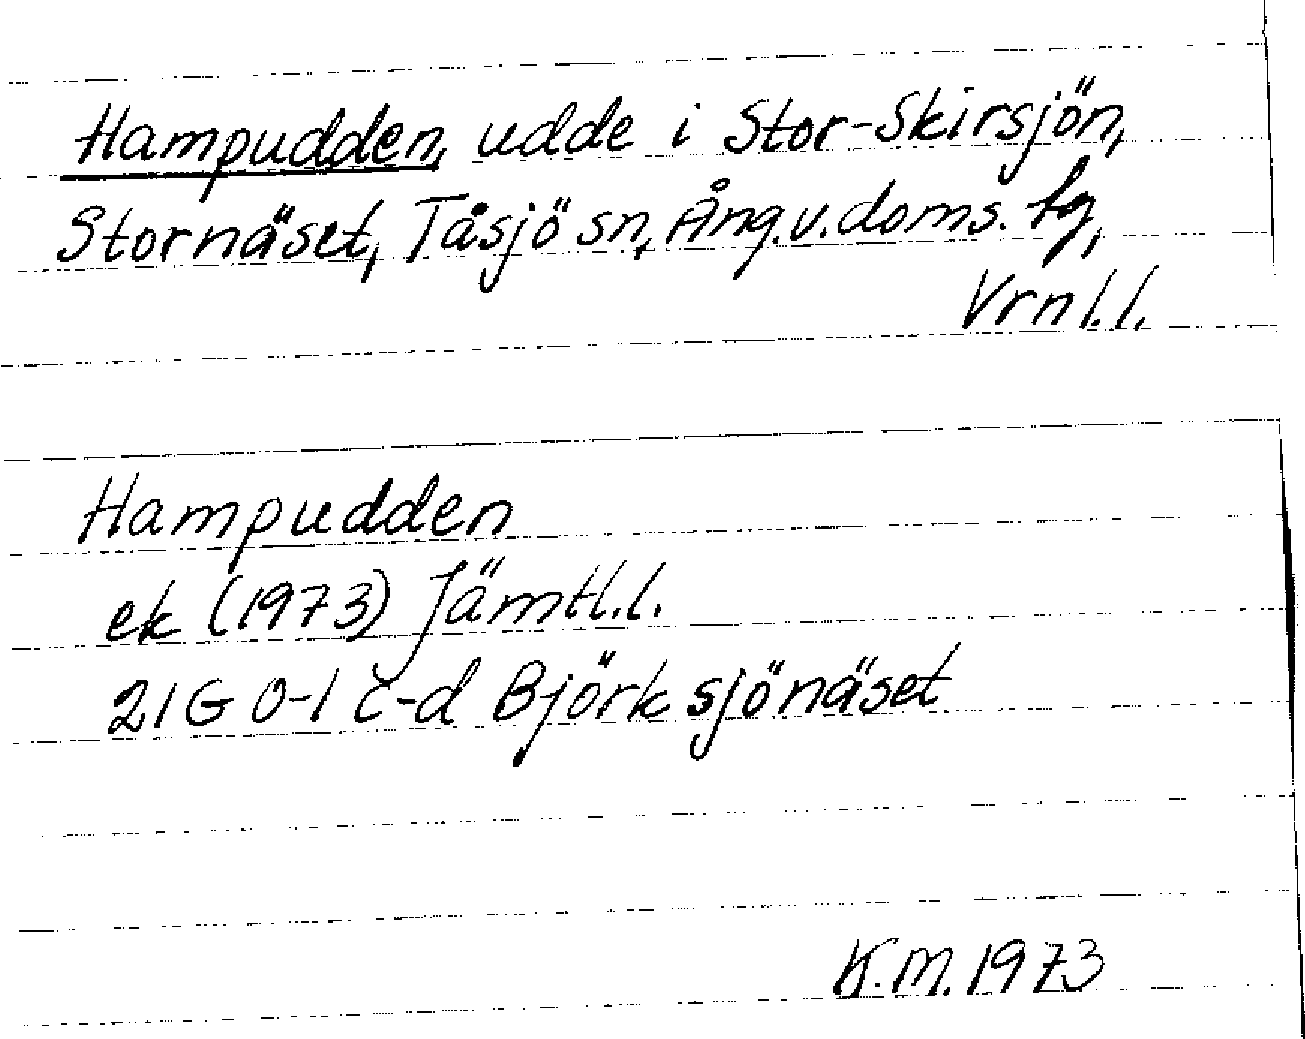 Hampudden, udde i Stor-Skirsjön,
Stornäset, Tåsjö sn, Ång.v.doms. tg,
Vrnl.l.
Hampudden
ek (1973) Jämtl.l.
21G 0-1 c-d Björksjönäset
K.M. 1973